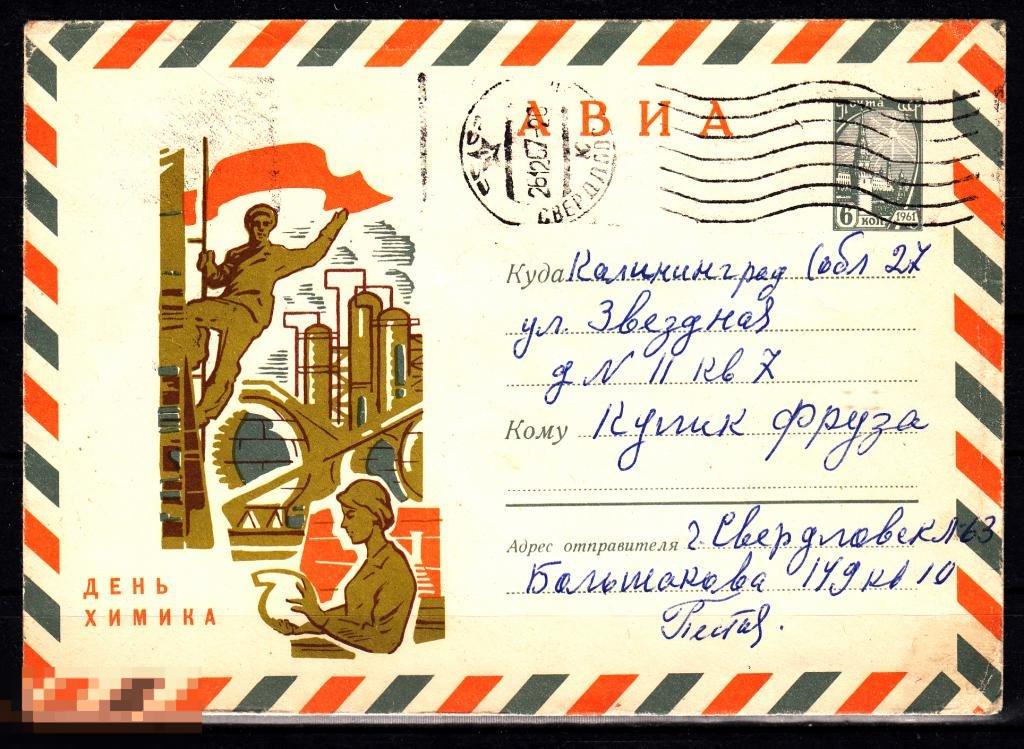 АВИА
СССР
261267
СВЕРДЛОВСК
почта
6 коп 1961
Куда Калининград (обл 27
ул. Звездная
д N 11 кв 7
Кому Купик Фруза
Адрес отправителя г. Свердловск
Большакова 149 кв 10
ДЕНЬ
ХИМИКА